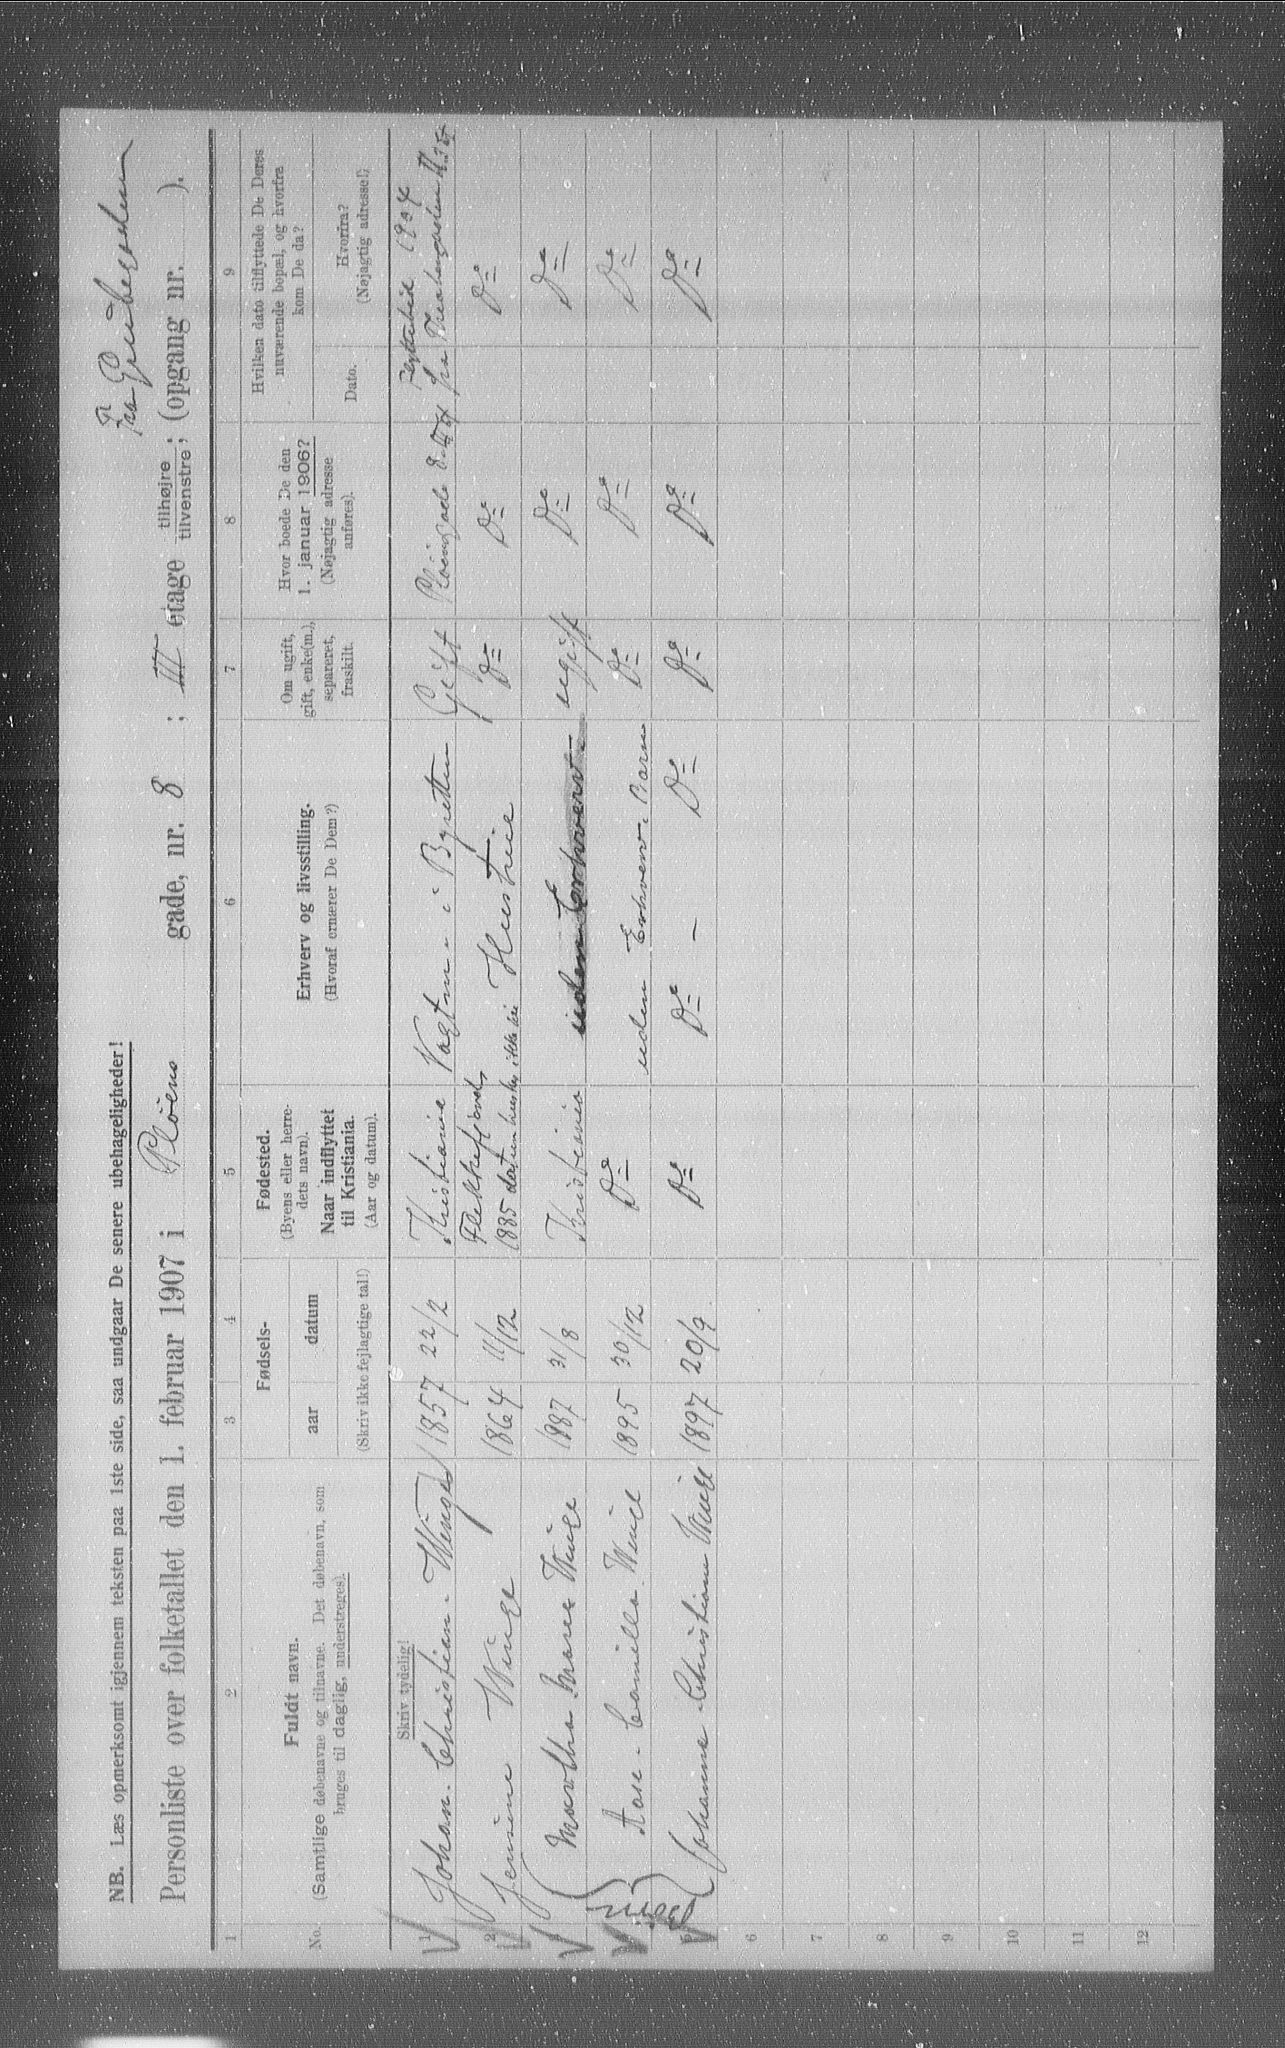 NB. Læs opmerksomt igjennem teksten paa 1ste side, saa undgaar De senere ubehageligheder!
Personliste over folketallet den 1. februar 1907 i Pløens gade, nr. 8 ; III etage tilhøjre tilvenstre; (opgang nr. ).
1 2 3 4 5 6 7 8 9
No.
Fuldt navn.
(Samtlige døbenavne og tilnavne. Det døbenavn, som
bruges til daglig, understreges).
Fødsels-
aar datum
(Skriv ikke fejlagtige tal!)
Fødested.
(Byens eller herre-
dets navn).
Naar indflyttet
til Kristiania.
(Aar og datum).
Erhverv og livsstilling.
(Hvoraf ernærer De Dem?)
Om ugift,
gift, enke(m.),
separeret,
fraskilt.
Hvor boede De den
1. januar 1906?
(Nøjagtig adresse
anføres).
Hvilken dato tilflyttede De Deres
nuværende bopæl, og hvorfra
kom De da?
Dato.
Hvorfra?
(Nøjagtig adresse!)
Skriv tydelig!
1 Johan Christian Winge 1857 22/2 Kristiania Vagtm. i Byretten Gift Pløensgade 8 1904
2 Jensine Winge 1864 11/12 Flekkefjord 1885 datum huskes ikke Hustrue Do Do Do
3 Martha Marie Winge 1887 31/8 Kristiania uden Erhverv ugift Do Do
4 Aase Camilla Winge 1895 30/12 Do uden Erhverv Barn Do Do Do
5 Johanne Christiane Winge 1897 20/9 Do Do - Do Do Do Do
6
7
8
9
10
11
12